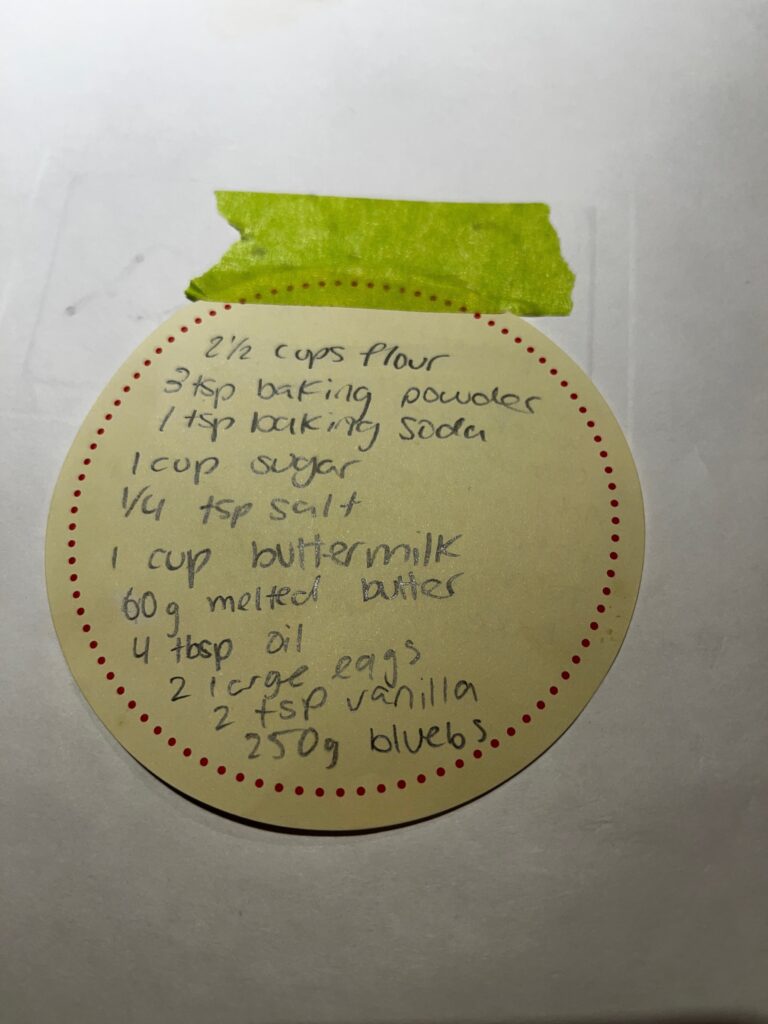 2 1/2 cups flour
3 tsp baking powder
1 tsp baking soda
1 cup sugar
1/4 tsp salt
1 cup buttermilk
60g melted butter
4 tbsp oil
2 large eggs
2 tsp vanilla
250g bluebs